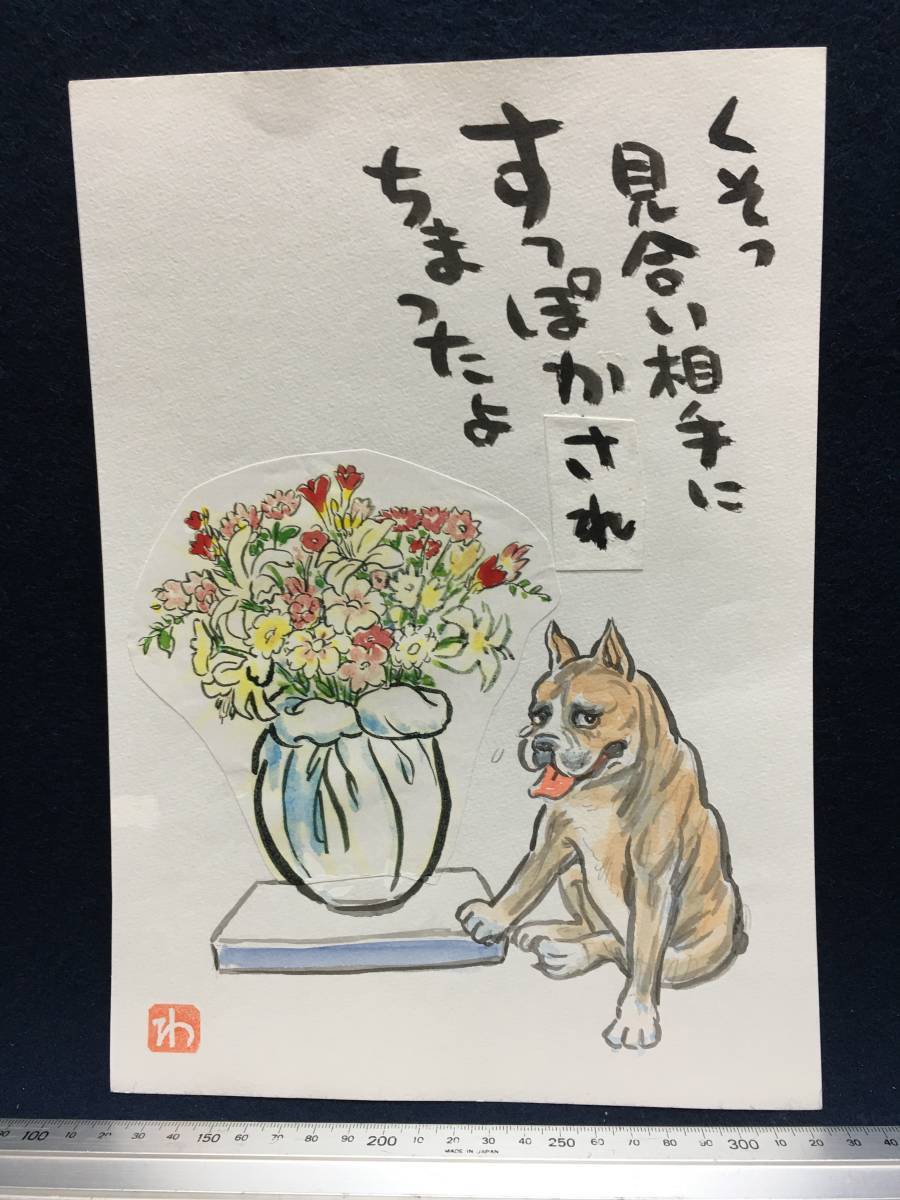 くそっ
見合い相手に
すっぽかされ
ちまったよ
わ
100 10 20 30 40 150 60 70 80 90 200 10 20 30 40 250 60 70 80 90 300 10 20 30 40
MADE IN JAPAN